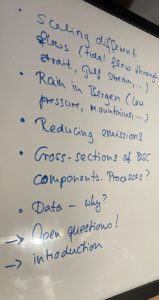 • Scaling different
flows (tidal flow through
strait, Gulf Stream, ...)
• Rain in Bergen (low
pressure, mountains, ...)
• Reducing emissions
• Cross-sections of
components. Processes?
• Data - why?
→ Open questions!
→ introduction